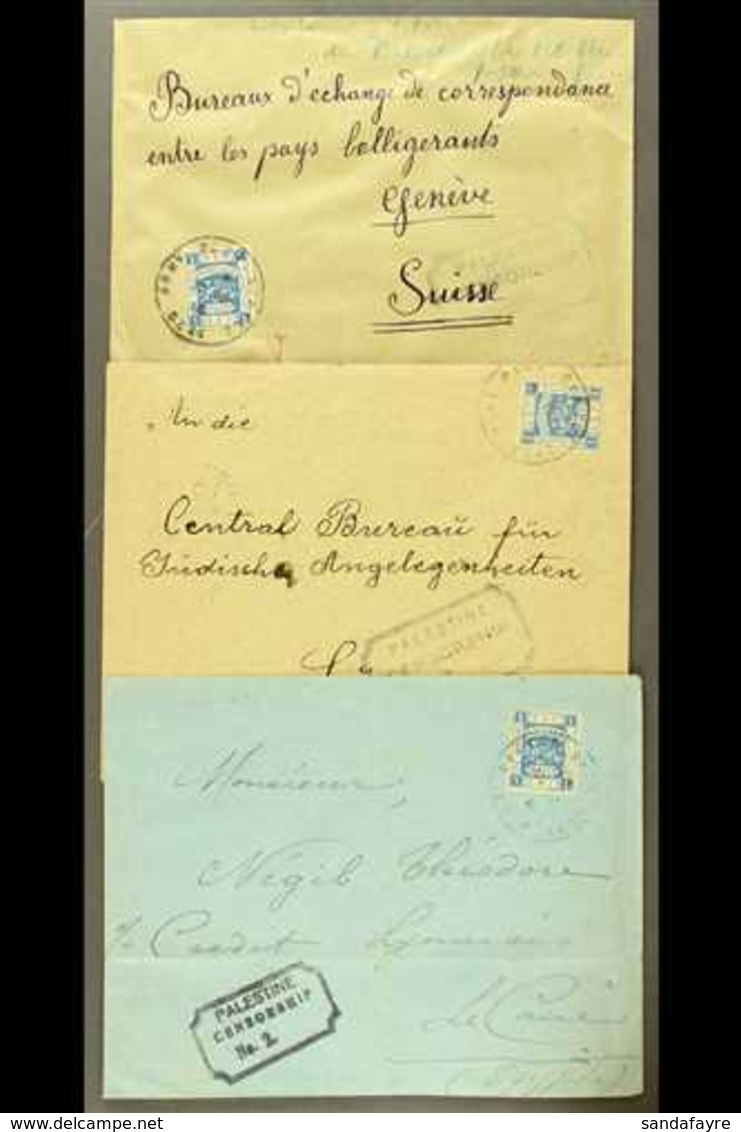 Bureaux d'échange de correspondance
entre les pays belligerants
Genève
Suisse
An die
Central Bureaŭ für
Jüdische Angelegenheiten
PALESTINE
CENSORSHIP
Monsieur,
Négib Théodore
Credit Lyonnais
PALESTINE
CENSORSHIP
No. 2
Le Caire
(Egypte)
sandafayre